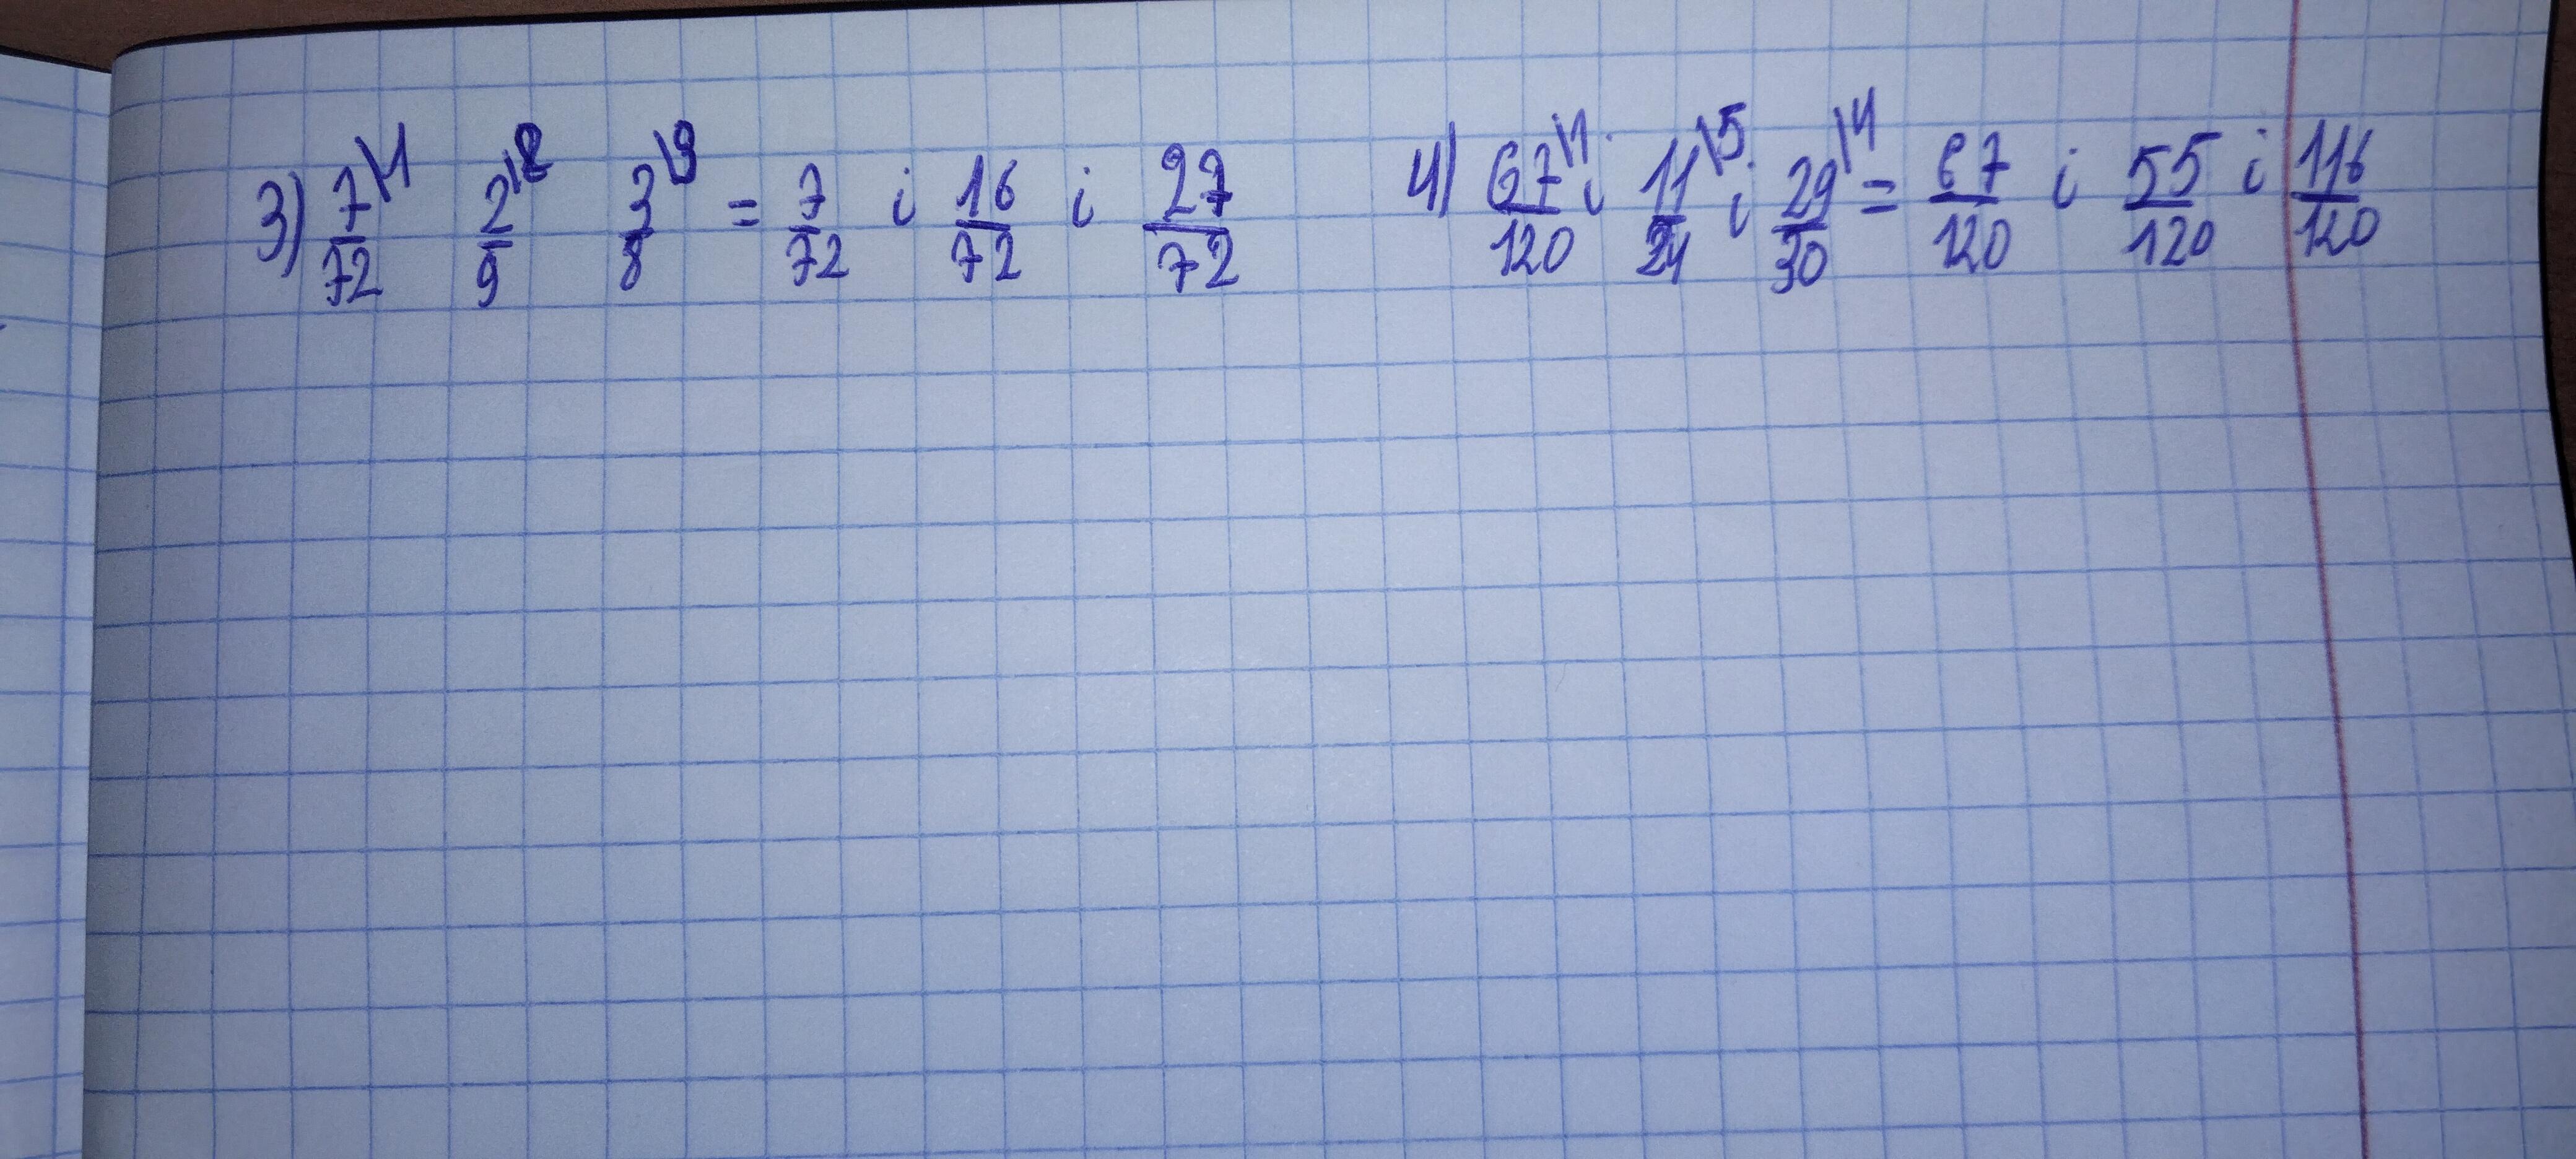 3) 7/72 \1 2/9 \8 3/8 \9 = 7/72 i 16/72 i 27/72
4) 67/120 \1 i 11/24 \5 i 29/30 \4 = 67/120 i 55/120 i 116/120